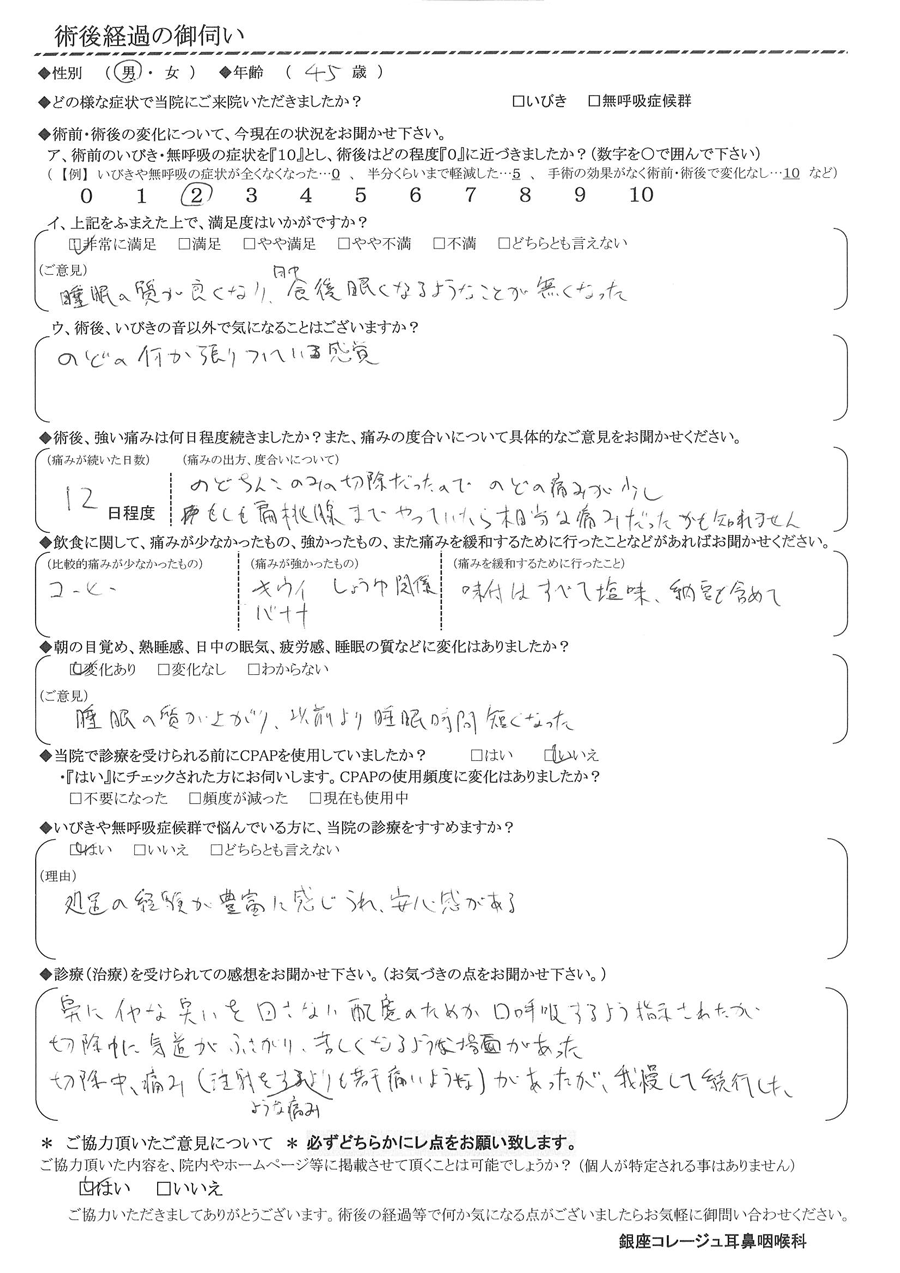 術後経過の御伺い
◆性別 （ 男 ・ 女 ） ◆年齢 （ 45 歳 ）
◆どの様な症状で当院にご来院いただきましたか？ □いびき □無呼吸症候群
◆術前・術後の変化について、今現在の状況をお聞かせ下さい。
ア、術前のいびき・無呼吸の症状を『10』とし、術後はどの程度『0』に近づきましたか？（数字を〇で囲んで下さい）
（【例】いびきや無呼吸の症状が全くなくなった…0 、 半分くらいまで軽減した…5 、 手術の効果がなく術前・術後で変化なし…10 など）
0 1 2 3 4 5 6 7 8 9 10
イ、上記をふまえた上で、満足度はいかがですか？
☑非常に満足 □満足 □やや満足 □やや不満 □不満 □どちらとも言えない
（ご意見）
睡眠の質が良くなり、日中食後眠くなるようなことが無くなった
ウ、術後、いびきの音以外で気になることはございますか？
のどの何か張りついている感覚
◆術後、強い痛みは何日程度続きましたか？また、痛みの度合いについて具体的なご意見をお聞かせください。
（痛みが続いた日数） （痛みの出方、度合いについて）
12 日程度 のどちんこのみの切除だったので のどの痛みが少し
もしも扁桃腺までやっていたら相当な痛みだったかも知れません
◆飲食に関して、痛みが少なかったもの、強かったもの、また痛みを緩和するために行ったことなどがあればお聞かせください。
（比較的痛みが少なかったもの） （痛みが強かったもの） （痛みを緩和するために行ったこと）
コーヒー キウイ しょうゆ関係 味付はすべて塩味、納豆も含めて
バナナ
◆朝の目覚め、熟睡感、日中の眠気、疲労感、睡眠の質などに変化はありましたか？
☑変化あり □変化なし □わからない
（ご意見）
睡眠の質が上がり、以前より睡眠時間短くなった
◆当院で診療を受けられる前にCPAPを使用していましたか？ □はい ☑いいえ
・『はい』にチェックされた方にお伺いします。CPAPの使用頻度に変化はありましたか？
□不要になった □頻度が減った □現在も使用中
◆いびきや無呼吸症候群で悩んでいる方に、当院の診療をすすめますか？
☑はい □いいえ □どちらとも言えない
（理由）
処置の経験が豊富に感じられ、安心感がある
◆診療（治療）を受けられての感想をお聞かせ下さい。（お気づきの点をお聞かせ下さい。）
鼻にイヤな臭いを回さない配慮のためか口呼吸するよう指示されたが
切除中に気道がふさがり、苦しくなるような場面があった
切除中、痛み（注射をするよりも若干痛いような）があったが、我慢して続行した、
ような痛み
＊ ご協力頂いたご意見について ＊ 必ずどちらかにレ点をお願い致します。
ご協力頂いた内容を、院内やホームページ等に掲載させて頂くことは可能でしょうか？（個人が特定される事はありません）
☑はい □いいえ
ご協力いただきましてありがとうございます。術後の経過等で何か気になる点がございましたらお気軽に御問い合わせください。
銀座コレージュ耳鼻咽喉科